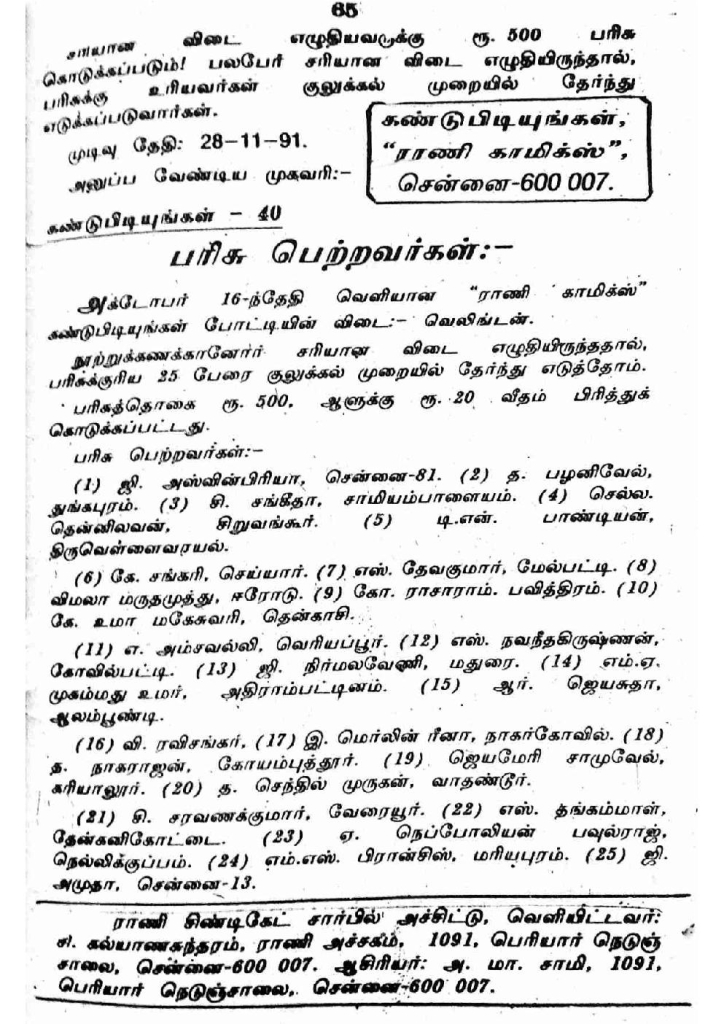 65
சரியான விடை எழுதியவருக்கு ரூ. 500 பரிசு
கொடுக்கப்படும்! பலபேர் சரியான விடை எழுதியிருந்தால்,
பரிசுக்கு உரியவர்கள் குலுக்கல் முறையில் தேர்ந்து
எடுக்கப்படுவார்கள்.
முடிவு தேதி: 28-11-91.
அனுப்ப வேண்டிய முகவரி:-
கண்டுபிடியுங்கள்,
"ராணி காமிக்ஸ்",
சென்னை-600 007.
கண்டுபிடியுங்கள் - 40
பரிசு பெற்றவர்கள்:-
அக்டோபர் 16-ந்தேதி வெளியான "ராணி காமிக்ஸ்"
கண்டுபிடியுங்கள் போட்டியின் விடை:- வெலிங்டன்.
நூற்றுக்கணக்கானோர் சரியான விடை எழுதியிருந்ததால்,
பரிசுக்குரிய 25 பேரை குலுக்கல் முறையில் தேர்ந்து எடுத்தோம்.
பரிசுத்தொகை ரூ. 500, ஆளுக்கு ரூ. 20 வீதம் பிரித்துக்
கொடுக்கப்பட்டது.
பரிசு பெற்றவர்கள்:-
(1) ஜி. அஸ்வின்பிரியா, சென்னை-81. (2) த. பழனிவேல்,
துங்கபுரம். (3) சி. சங்கீதா, சாமியம்பாளையம். (4) செல்ல.
தென்னிலவன், சிறுவங்கூர். (5) டி.என். பாண்டியன்,
திருவெள்ளைவாயல்.
(6) கே. சங்கரி, செய்யார். (7) எஸ். தேவகுமார், மேல்பட்டி. (8)
விமலா மருதமுத்து, ஈரோடு. (9) கோ. ராசாராம். பவித்திரம். (10)
கே. உமா மகேசுவரி, தென்காசி.
(11) எ. அம்சவல்லி, வெரியப்பூர். (12) எஸ். நவநீதகிருஷ்ணன்,
கோவில்பட்டி. (13) ஜி. நிர்மலவேணி, மதுரை. (14) எம்.ஏ.
முகம்மது உமர், அதிராம்பட்டினம். (15) ஆர். ஜெயசுதா,
ஆலம்பூண்டி.
(16) வி. ரவிசங்கர், (17) இ. மெர்லின் ரீனா, நாகர்கோவில். (18)
த. நாகராஜன், கோயம்புத்தூர். (19) ஜெயமேரி சாமுவேல்,
கரியாலூர். (20) த. செந்தில் முருகன், வாதண்டூர்.
(21) சி. சரவணக்குமார், வேரையூர். (22) எஸ். தங்கம்மாள்,
தேன்கனிகோட்டை. (23) ஏ. நெப்போலியன் பவுல்ராஜ்,
நெல்லிக்குப்பம். (24) எம்.எஸ். பிரான்சிஸ், மரியபுரம். (25) ஜி.
அமுதா, சென்னை-13.
ராணி சிண்டிகேட் சார்பில் அச்சிட்டு, வெளியிட்டவர்:
சு. கல்யாணசுந்தரம், ராணி அச்சகம், 1091, பெரியார் நெடுஞ்
சாலை, சென்னை-600 007. ஆசிரியர்: அ. மா. சாமி, 1091,
பெரியார் நெடுஞ்சாலை, சென்னை-600 007.